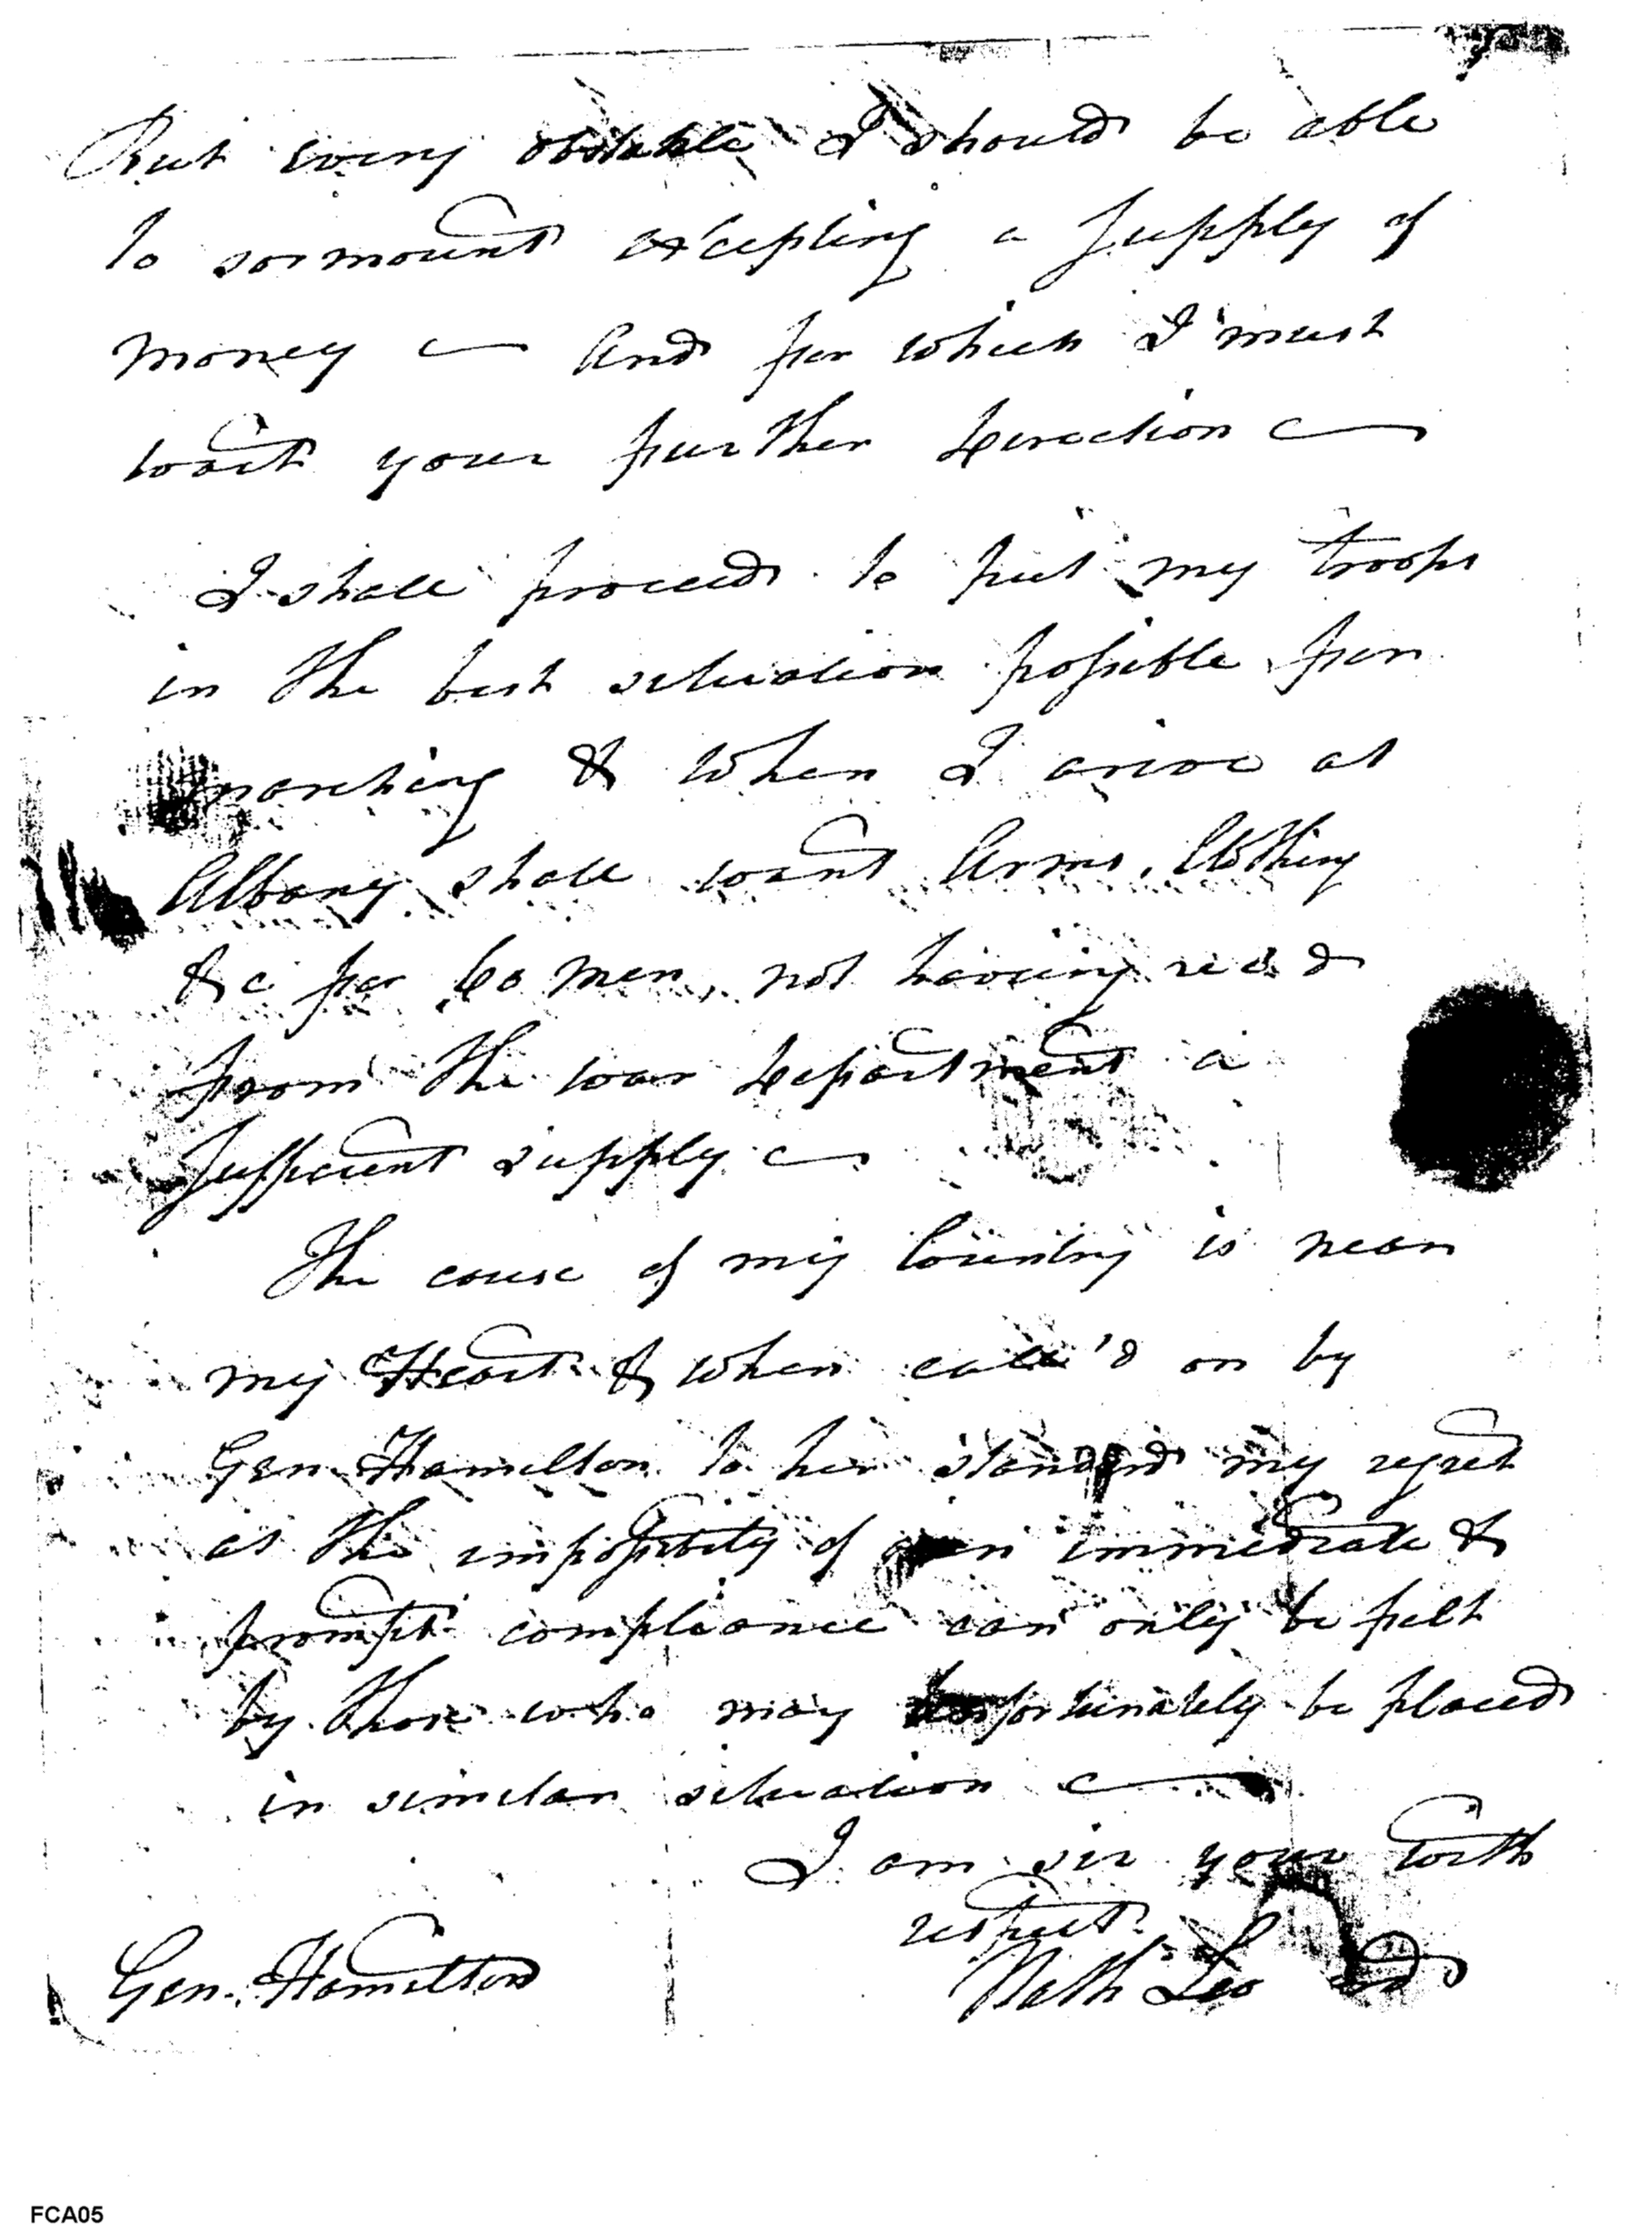 But every obstakle I should be able
to sormount excepting a supply of
money — And for which I must
wait your further Direction —
I shall proceed to put my troops
in the best situation possible for
marching & when I arive at
Albany shall want Arms, Clothing
&c for 60 men, not having recd
from the war Department a
sufficient supply —
The cause of my Country is near
my Heart & when call'd on by
Gen. Hamilton to her standard my regret
at the impossibility of an immediate &
prompt compliance can only be felt
by those who may unfortunately be placed
in similar situation —
I am sir your with
respect
Nath Leonard
Gen. Hamilton
FCA05